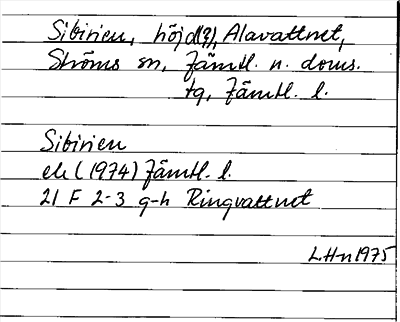 Sibirien, höjd(?), Alavattnet,
Ströms sn, Jämtl. n. doms.
tg, Jämtl. l.
Sibirien
ek (1974) Jämtl. l.
21 F 2-3 g-h Ringvattnet
LHn 1975